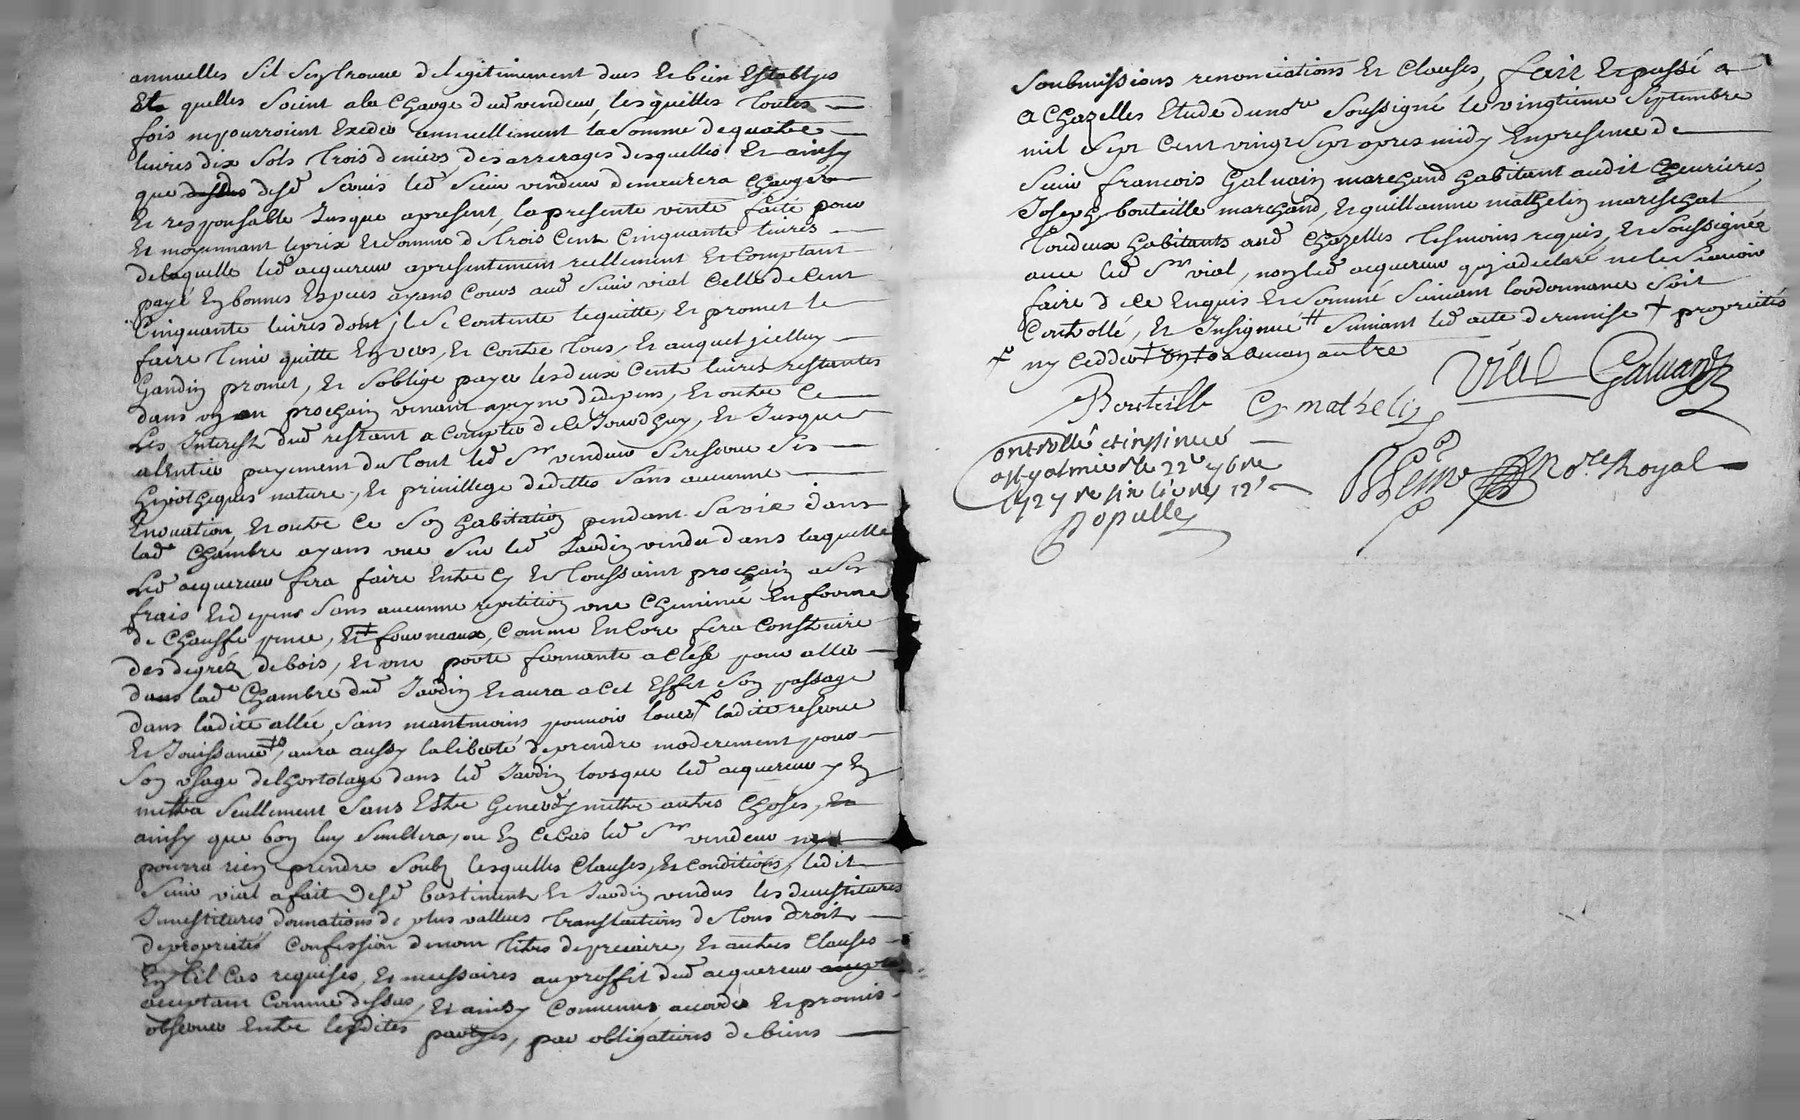 annuelles sil sen trouve delegitimement deus et bien establyes
et quelles soint ala charge dud vendeur, lesquelles toutes
fois ne pourroient exeder annuellement la somme de quatre
livres dix sols trois deniers des arrerages desquelles et ainsy
que desd servis led sieur vendeur demeurera charger
et responsable jusque apresent, la presente vente faite pour
et moyennant le prix et somme de trois cent cinquante livres
de laquelle led acquereur apresentement reellement et comptant
payé en bonnes especes ayans cours aud sieur vial celle de cent
cinquante livres dont il se contente le quitte, et promet le
faire tenir quitte envers, et contre tous, et auquel icelluy
Gandin promet, et soblige payer les deux cents livres restantes
dans un an prochain venant apeyne de depens, et outre ce
les interest dud restant a compter de ce jourdhuy, et jusque
alentier payement du tout led sr vendeur se reserve ses
hipotheques nature, et privillege dedettes sans aucunne
inovation, et outre ce son habitation pendant sa vie dans
lad chambre ayans vue sur led jardin vendu dans laquelle
led acquereur fera faire entre cy et toussaint prochain a ses
frais et depens sans aucunne repetition une cheminée en forme
de chauffe pence, et fourneaux, comme encore fera construire
des degréz de bois, et une porte fermante a clefs pour aller
dans lad chambre dud jardin et aura a cet effet son passage
dans ladite allée, sans neantmoins pouvoir louer + ladite reserve
et jouissance, aura aussy la liberté de prendre moderement pour
son usage de lhortolage dans led jardin lorsque led acquereur y en
mettra seullement sans estre gener dy mettre autres choses, en
ainsy que bon luy semblera, ou en ce cas led sr vendeur ne
pourra rien prendre soubz lesquelles clauses, et conditions, ledit
sieur vial a fait desd bastiment et jardin vendus les devestitures
Investitures donnations de plus vallues translactions de tous droit
de proprietés confession de nom titres de precaire, et autres clauses
en tel cas requises, et necessaires au proffit dud acquereur
acceptant comme dessus, et ainsy convenus, accordés et promis
observer entre lesdites partyes, par obligations de biens
Soubmissions renonciations et clauses, fait et passé a
a chazelles etude du nore soussigné le vingtieme septembre
mil sept cent vingt sept apres midy en presence de
sieur francois Galvain marchand habitant audit chevrieres
Joseph bouteille marchand, et guillaume mathelin mareschal
tous deux habitants aud chazelles tesmoins requis, et soussignée
avec led sr vial, non led acquereur qui a declaré ne le scavoir
faire de ce enquis et sommé suivant lordonnance soit
controllé, et insignué # suivant led acte de remise + proprietés
+ ny cedder a aucun autre
Vial Galvain
Bouteille G mathelin
Controllé et insinué
a st galmier le 22e 7bre
1727 re six livres 12s
Populle
Nore Royal